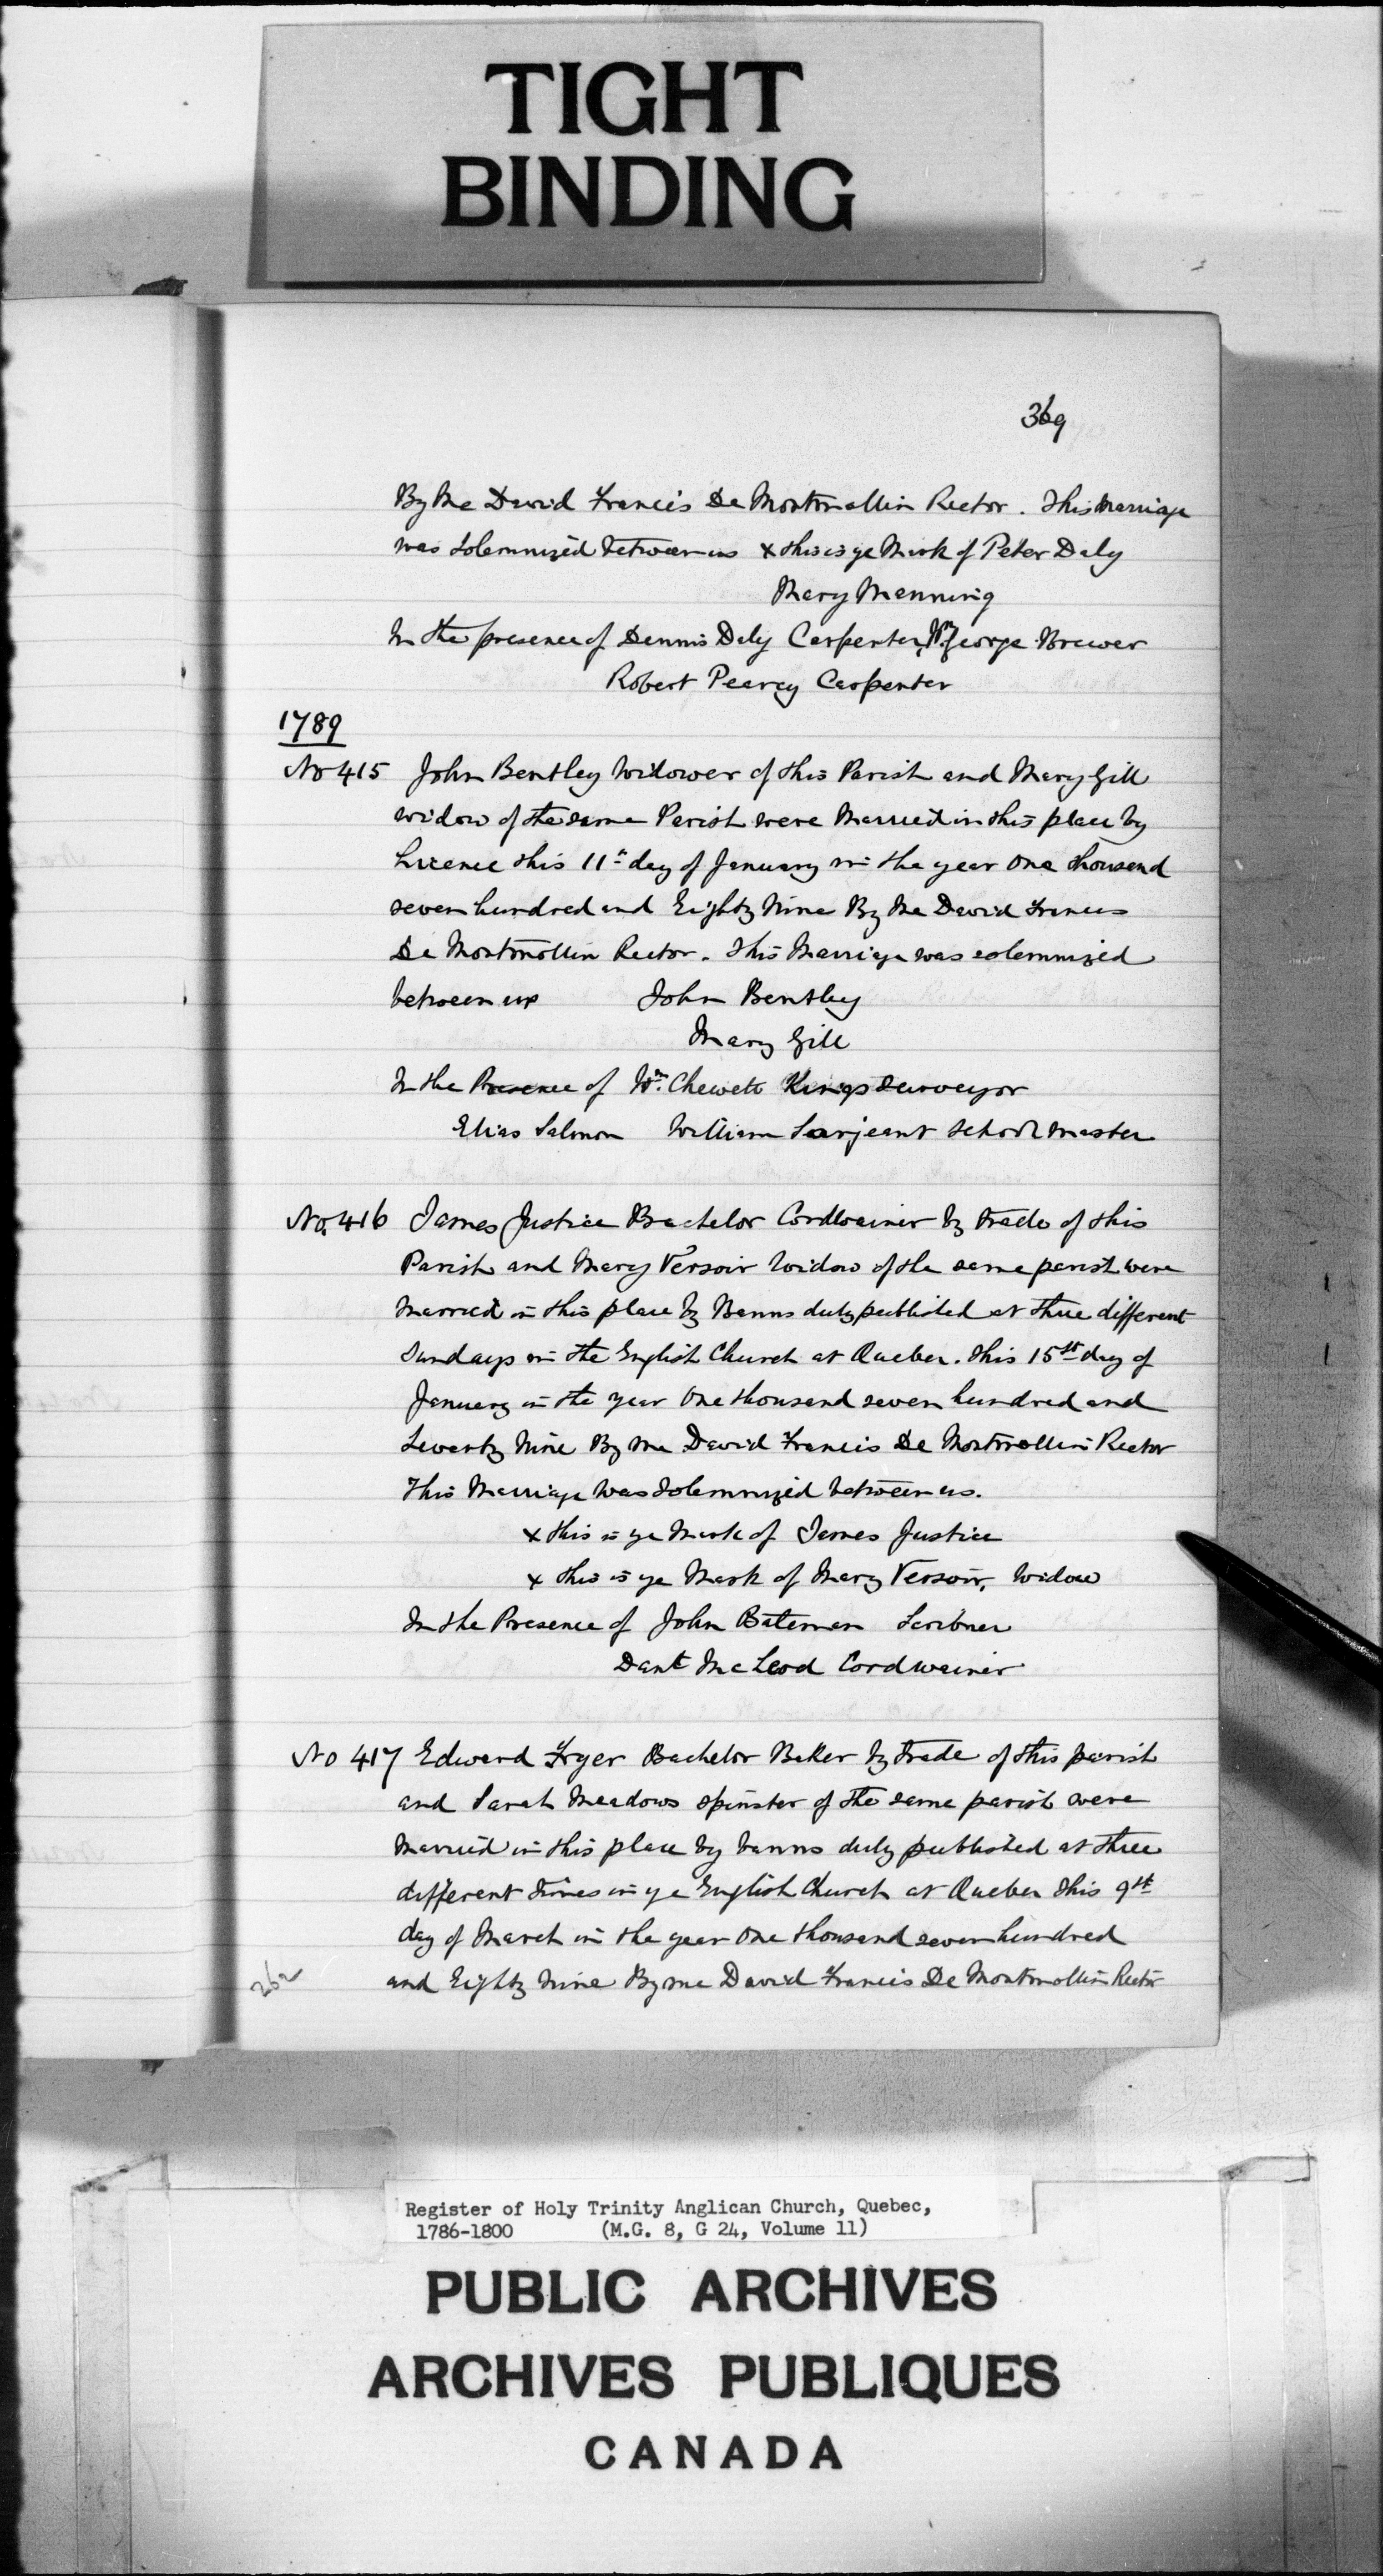 TIGHT
BINDING
369
By Me David Francis De Montmollin Rector. This Marriage
was Solemnized between us x this is ye Mark of Peter Daly
Mary Manning
In the presence of Dennis Daly Carpenter, George Brewer
Robert Pearcy Carpenter
1789
No 415 John Bentley Widower of this Parish and Mary Gill
widow of the same Parish were Married in this place by
Licence this 11th day of January in the year One thousand
seven hundred and Eighty Nine By Me David Francis
De Montmollin Rector. This Marriage was solemnized
between us John Bentley
Mary Gill
In the Presence of Wm. Chewett Kings Surveyor
Elias Salmon William Sarjeant School Master
No. 416 James Justice Bachelor Cordwainer by trade of this
Parish and Mary Versoir Widow of the same parish were
Married in this place by Banns duly published at three different
Sundays in the English Church at Quebec. this 15th day of
January in the year One thousand seven hundred and
Seventy Nine By me David Francis De Montmollin Rector
This Marriage was Solemnized between us.
x this is ye Mark of James Justice
x this is ye Mark of Mary Versoir, Widow
In the Presence of John Bateman Scribner
Danl McLeod Cordwainer
No 417 Edward Fryer Bachelor Baker by trade of this parish
and Sarah Meadows spinster of the same parish were
Married in this place by banns duly published at three
different times in ye English Church at Quebec this 9th
day of March in the year One thousand seven hundred
and Eighty Nine By me David Francis De Montmollin Rector
262
Register of Holy Trinity Anglican Church, Quebec,
1786-1800 (M.G. 8, G 24, Volume 11)
PUBLIC ARCHIVES
ARCHIVES PUBLIQUES
CANADA